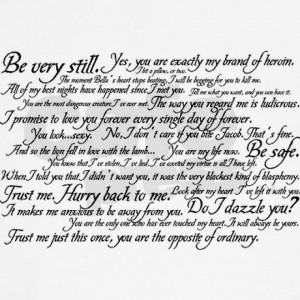 Be very still. Yes, you are exactly my brand of heroin.
Bit a pillow, or two.
The moment Bella's heart stops beating, I will be begging for you to kill me.
All of my best nights have happened since I met you. Tell me what you want, and you can have it.
You are the most dangerous creature I've ever met. The way you regard me is ludicrous.
I promise to love you forever every single day of forever.
You look...sexy. No, I don't care if you bite Jacob. That's fine...
And so the lion fell in love with the lamb... You are my life now. Be safe.
You know that I've stolen, I've lied, I've coveted my virtue is all I have left.
When I told you that I didn't want you, it was the very blackest kind of blasphemy.
Trust me. Hurry back to me. Look after my heart I've left it with you.
It makes me anxious to be away from you. Do I dazzle you?
You are the only one who has ever touched my heart. It will always be yours.
Trust me just this once, you are the opposite of ordinary.